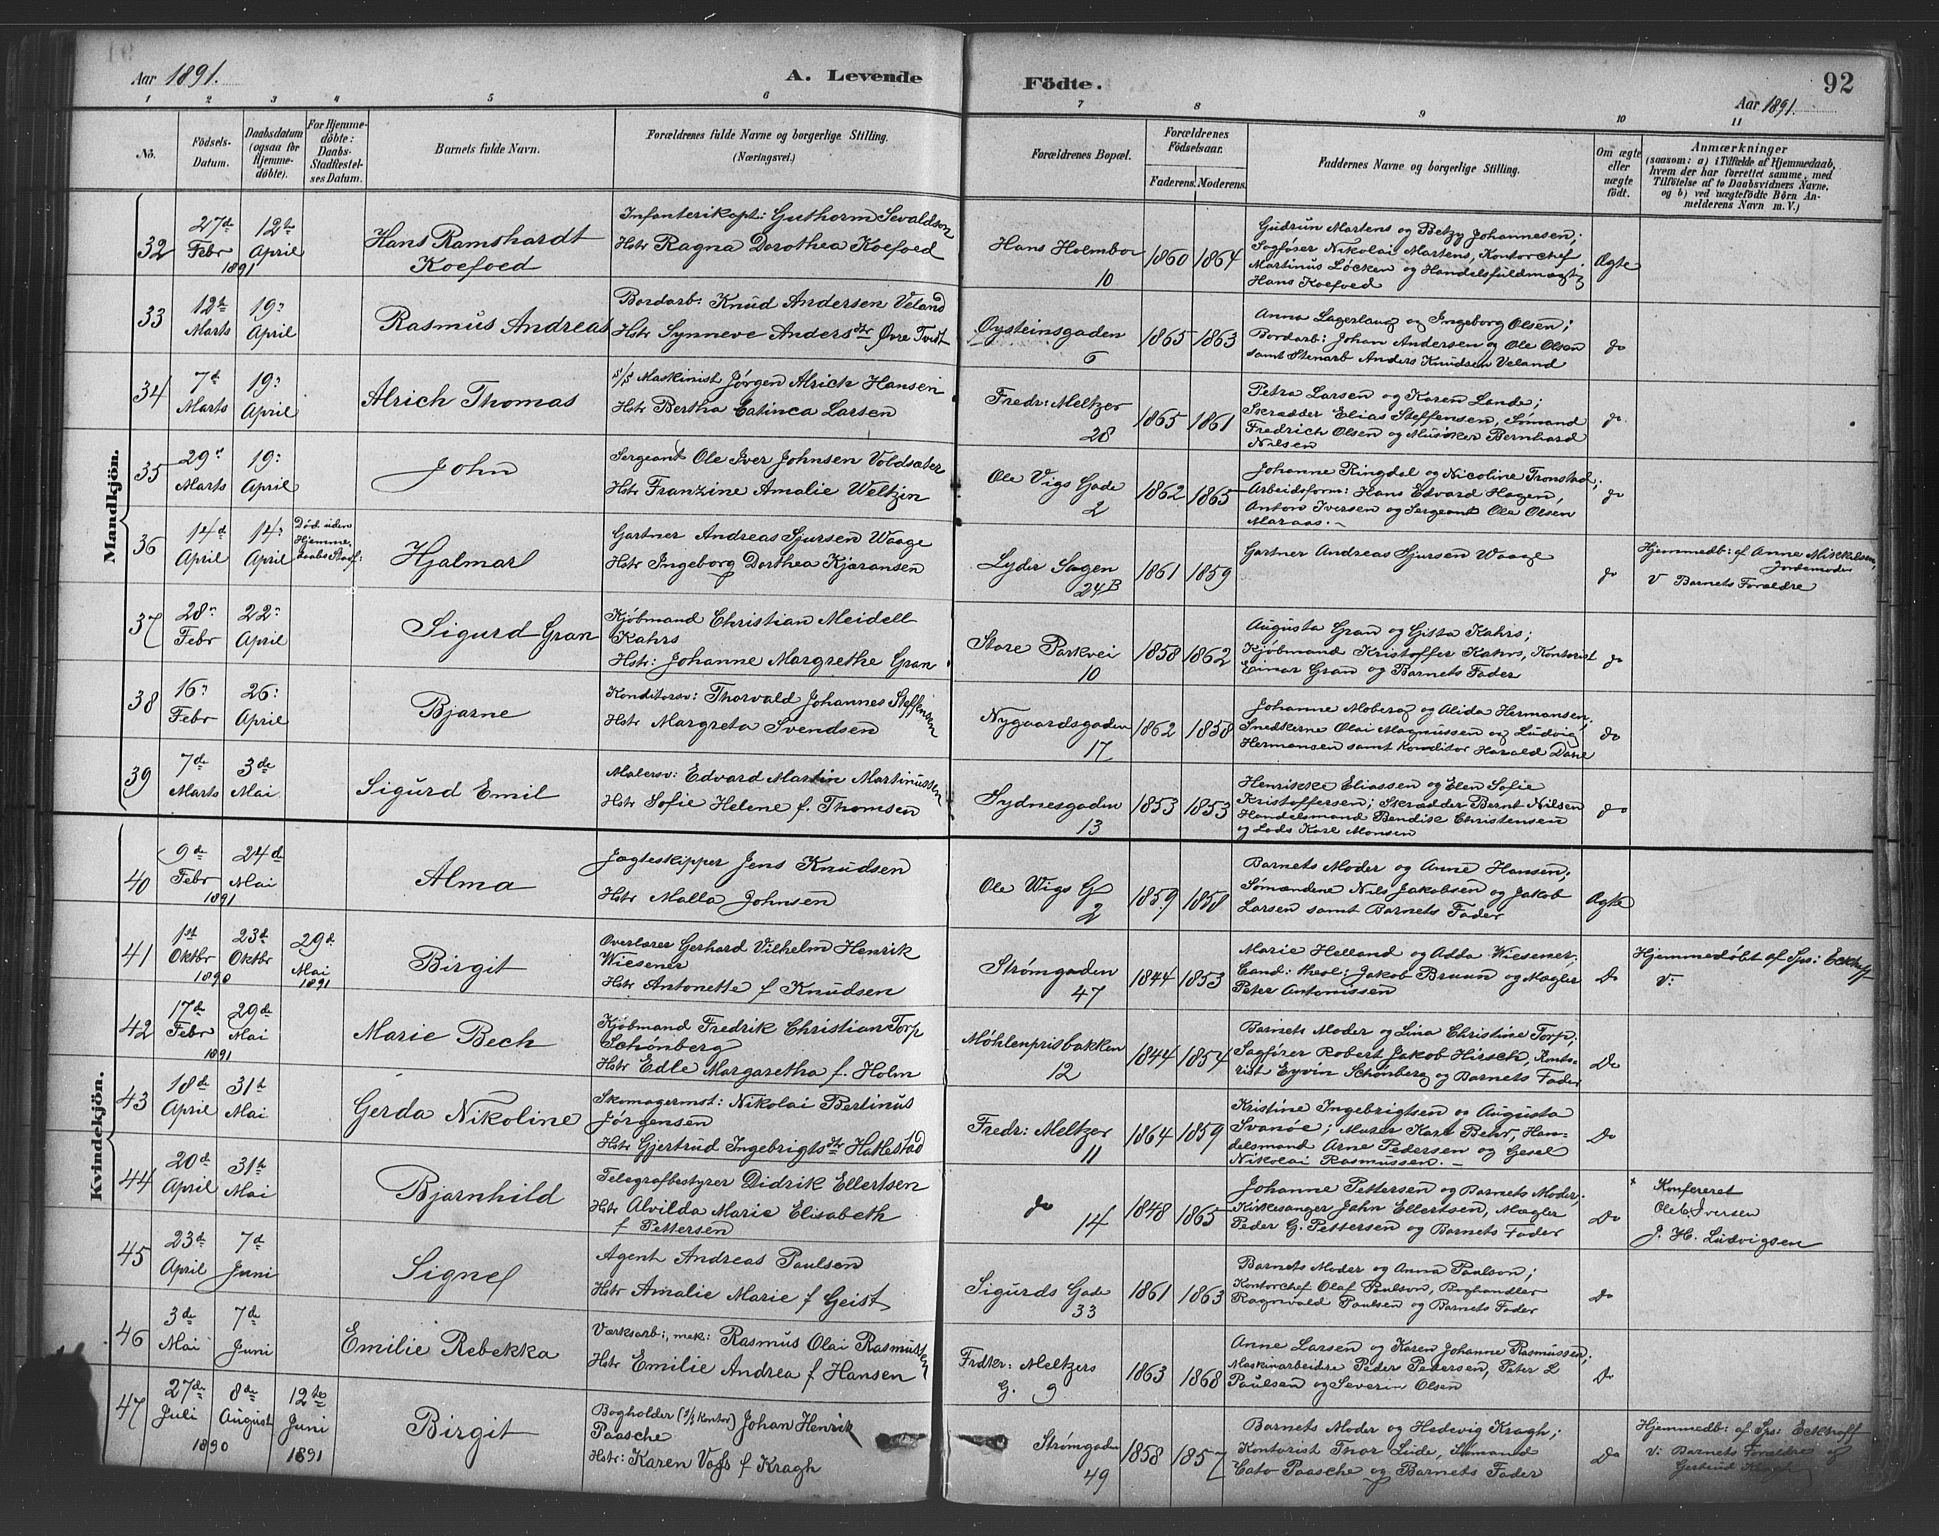 Aar 1891.
A. Levende Födte.
92
Aar 1891.
1 2 3 4 5 6 7 8 9 10 11
No.
Födsels-
Datum.
Daabsdatum
(ogsaa for
Hjemme-
døbte).
For Hjemme-
døbte:
Daabs-
Stadfæstel-
ses Datum.
Barnets fulde Navn.
Forældrenes fulde Navne og borgerlige Stilling.
(Næringsvei.)
Forældrenes Bopæl.
Forældrenes
Födselsaar.
Faderens. Moderens.
Faddernes Navne og borgerlige Stilling.
Om ægte
eller
uægte
födt.
Anmærkninger
(saasom: a) i Tilfælde af Hjemmedaab,
hvem der har forrettet samme, med
Tilføielse af to Daabsvidners Navne,
og b) ved uægtefödte Börn An-
melderens Navn m. V.)
Mandkjön.
32
27de
Febr
1891
12te
April
Hans Ramshardt
Koefoed
Infanterikapt: Guthorm Sevaldson
Hstr Ragna Dorothea Koefoed
Hans Holmboe
10
1860 1864
Gudrun Martens og Betzy Johannesen;
Sagfører Nikolai Martens, Kontorchef
Martinus Løcken og Handelsfuldmægt
Hans Koefoed
Ægte
33
12te
Marts
19:
April
Rasmus Andreas
Bordarb: Knud Andersen Veland
Hstr Synneve Andersdtr Øvre Tvedt
Øysteinsgaden
6
1865 1863
Anna Lagerlaug og Ingeborg Olsen;
Bordarb: Johan Andersen og Ole Olsen
samt Stenarb Anders Knudsen Veland
do
34
7d
Marts
19:
April
Alrich Thomas
s/s Maskinist Jørgen Alrich Hansen
Hstr Bertha Catinca Larsen
Fredr: Meltzer
28
1865 1861
Petra Larsen og Karen Lande;
Skrædder Elias Steffensen, Sömand
Fredrich Olsen og Musiker Bernhard
Nilsen
do
35
29de
Marts
19:
April
John
Sergeant Ole Iver Johnsen Voldsæter
Hstr Franzine Amalie Weltzin
Ole Vigs Gade
2
1862 1865
Johanne Ringdal og Nicoline Tronstad;
Arbeidsform: Hans Edvard Hagen,
Anton Iversen og Sergeant Ole Olsen
Maraas. —
do
36
14d
April
14:
April
Död uden
Hjemme-
daabs Stadf:
Hjalmar
Gartner Andreas Sjursen Waage
Hstr Ingeborg Dorthea Kjæransen
Lyder Sagen
24B
1861 1859
Gartner Andreas Sjursen Waage
do
Hjemmedb: af Anne Mikkelsen,
Jordemoder
V Barnets Forældre
37
28de
Febr
22:
April
Sigurd Gran
Kjøbmand Christian Meidell
Kahrs
Hstr: Johanne Margrethe Gran
Store Parkvei
10
1858 1862
Augusta Gran og Gitta Kahrs;
Kjøbmand Kristoffer Kahrs, Kontorist
Einar Gran og Barnets Fader
do
38
16:
Febr
26:
April
Bjarne
Konditorsv: Thorvald Johannes Steffensen
Hstr Margreta Svendsen
Nygaardsgaden
17
1862 1858
Johanne Moberg og Alida Hermansen;
Snedkerne Olai Magnussen og Ludvig
Hermansen samt Konditor Harald Dane
do
39
7de
Marts
3de
Mai
Sigurd Emil
Malersv: Edvard Martin Martinussen
Hstr Sofie Helene f. Thomsen
Sydnesgaden
13
1853 1853
Henrikke Eliassen og Elen Sofie
Kristoffersen; Skrædder Bernt Nilsen
Handelsmand Bendik Christensen
og Lods Karl Monsen
do
Kvindekjön.
40
9de
Febr
1891
24d
Mai
Alma
Jægteskipper Jens Knudsen
Hstr Malla Johnsen
Ole Wigs G
2
1859 1858
Barnets Moder og Anne Hansen;
Sømændene Nils Jakobsen og Jakob
Larsen samt Barnets Fader
Ægte
41
1st
Oktbr
1890
23d
Oktbr
29d
Mai
1891
Birgit
Overlærer Gerhard Vilhelm Henrik
Wiesener
Hstr Antonette f Knudsen
Strømgaden
47
1844 1853
Marie Helland og Adda Wiesener;
Cand: theol: Jakob Bruun og Mægler
Peter Antonissen
Do
Hjemmedøbt af Sps: Eckhoff
V:
42
17de
Febr
1891
29de
Mai
Marie Bech
Kjøbmand Fredrik Christian Torp
Schønberg
Hstr Edle Margaretha f. Holm
Møhlenprisbakken
12
1844 1854
Barnets Moder og Lina Christine Torp;
Sagfører Robert Jakob Hirsch, Konto-
rist Eyvin Schønberg og Barnets Fader
Do
43
18de
April
31te
Mai
Gerda Nikoline
Skomagermst: Nikolai Bertinus
Jørgensen
Hstr Gjertrud Ingebrigtsdtr Hatlestad
Fredr: Meltzer
11
1864 1859
Kristine Ingebrigtsen og Augusta
Svanøe; Murer Karl Behr, Han-
delsmand Arne Pedersen og Gesel
Nikolai Rasmussen. —
Do
44
20de
April
31te
Mai
Bjarnhild
Telegrafbestyrer Didrik Ellertsen
Hstr Alvilda Marie Elisabeth
f Pettersen
do
14
1848 1865
Johanne Pettersen og Barnets Moder;
Kirkesanger Jahn Ellertsen, Mægler
Peder G. Pettersen og Barnets Fader
Do
Konfereret
Ole C Iversen
J. H. Ludvigsen
45
23de
April
7d
Juni
Signe
Agent Andreas Paulsen
Hstr Amalie Marie f Geist
Sigurds Gade
33
1861 1863
Barnets Moder og Anna Paulson;
Kontorchef Olaf Paulson, Boghandler
Ragnvald Paulsen og Barnets Fader
Do
46
3de
Mai
7de
Juni
Emilie Rebekka
Værksarb:, mek: Rasmus Olai Rasmussen
Hstr Emilie Andrea f Hansen
Frdkr: Meltzers
G. 9
1863 1868
Anne Larsen og Karen Johanne Rasmussen;
Maskinarbeidre Peder Pedersen, Peter L
Paulsen og Severin Olsen
Do
47
27de
Juli
1890
8de
August
12te
Juni
1891
Birgit
Bogholder (s/s Kontor) Johan Henrik
Paasche
Hstr: Karen Voss f Kragh
Strømgaden
49
1858 1857
Barnets Moder og Hedevig Kragh;
Kontorist Thor Lüde, Sömand
Cato Paasche og Barnets Fader
Do
Hjemmedb: af Sps: Eckhoff
V: Barnets Forældre og
Gertrud Kragh